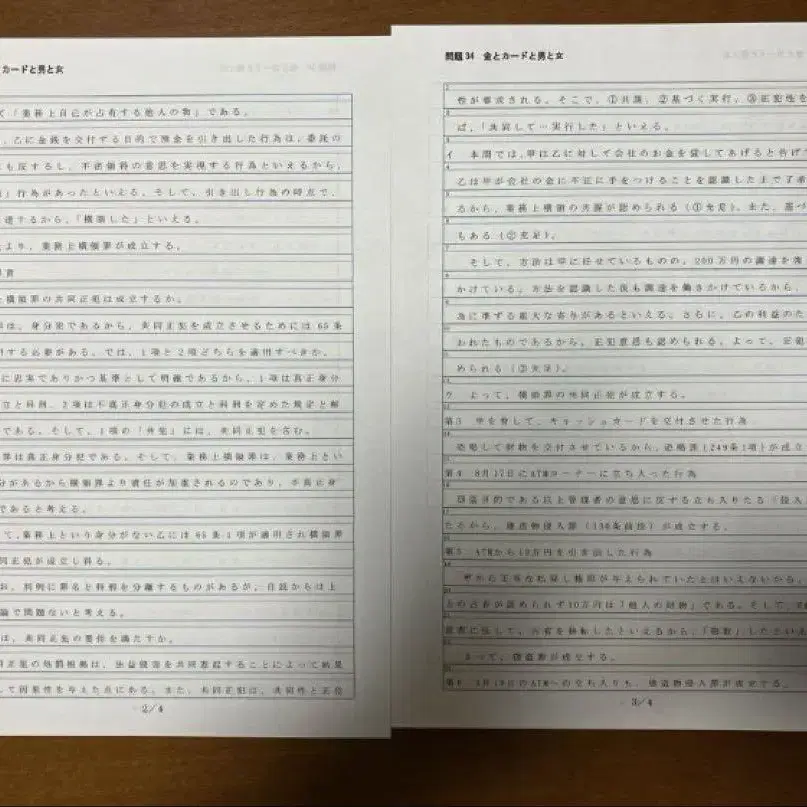 カードと男と女
て「業務上自己が占有する他人の物」である。
、乙に金銭を交付する目的で預金を引き出した行為は、委託の
も反するし、不法領得の意思を実現する行為といえるから、
」行為があったといえる。そして、引き出し行為の時点で、
達するから、「横領した」といえる。
より、業務上横領罪が成立する。
横領罪の共同正犯は成立するか。
は、身分犯であるから、共同正犯を成立させるためには65条
用する必要がある。では、1項と2項どちらを適用すべきか。
に忠実でありかつ基準として明確であるから、1項は真正身分
立と科刑、2項は不真正身分犯の成立と科刑を定めた規定と解
である。そして、1項の「共犯」には、共同正犯を含む。
罪は真正身分犯である。そして、業務上横領罪は、業務上とい
分があるから横領罪より責任が加重されるのであり、不真正身
であると考える。
て、業務上という身分がない乙には65条1項が適用され横領罪
同正犯が成立し得る。
お、判例に罪名と科刑を分離するものがあるが、自説からは上
論で問題ないと考える。
は、共同正犯の要件を満たすか。
同正犯の処罰根拠は、法益侵害を共同惹起することによって結果
して因果性を与えた点にある。また、共同正犯は、共同性と正犯
2/4
問題34 金とカードと男と女
性が要求される。そこで、①共謀、②基づく実行、③正犯性を
ば、「共同して…実行した」といえる。
イ 本問では、甲は乙に対して会社のお金を貸してあげると告げ
乙は甲が会社の金に不正に手をつけることを認識した上で了承
るから、業務上横領の共謀が認められる(①充足)。また、基づ
もある(②充足)。
そして、方法は甲に任せているものの、200万円の調達を働
かけている。方法を認識した後も調達を働きかけているから、
為に準ずる重大な寄与があるといえる。さらに、乙の利益のた
われたものであるから、正犯意思も認められる。よって、正犯
められる(③充足)。
ウ よって、横領罪の共同正犯が成立する。
第3 甲を脅して、キャッシュカードを交付させた行為
恐喝して財物を交付させているから、恐喝罪(249条1項)が成立
第4 8月17日にATMコーナーに立ち入った行為
窃盗目的である以上管理者の意思に反する立ち入りたる「侵入
たるから、建造物侵入罪(130条前段)が成立する。
第5 ATMから10万円を引き出した行為
甲から正当な払戻し権限が与えられていたとはいえないから、
上の占有が認められず10万円は「他人の財物」である。そして、
思に反して、占有を移転したといえるから、「窃取」したといえ
よって、窃盗罪が成立する。
第6 8月18日のATMへの立ち入りも、建造物侵入罪が成立する。
3/4